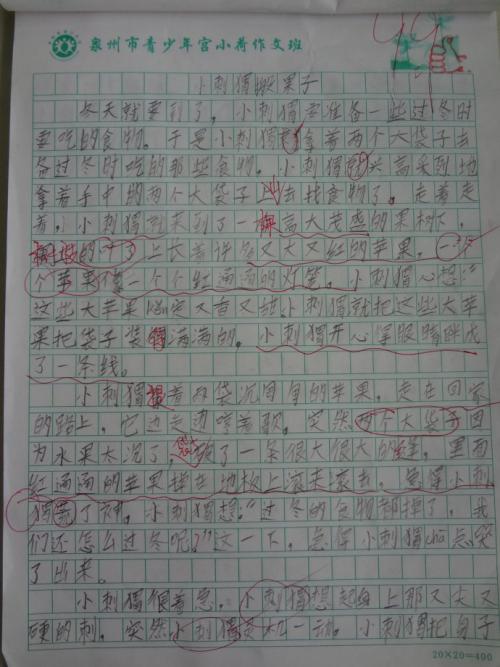 泉州市青少年宫小荷作文班
小刺猬搬果子
冬天就要到了，小刺猬要准备一些过冬时
要吃的食物。于是小刺猬拿着两个大袋子去
备过冬时吃的那些食物。小刺猬兴高采烈地
拿着手中的两个大袋子出去找食物了。走着走
着，小刺猬就来到了一棵高大茂盛的果树下，
树枝的叶子上长着许多又大又红的苹果，一
个苹果像一个个红通通的灯笼。小刺猬心想：“
这些大苹果kěn定又香又甜。小刺猬就把这些大苹
果把袋子装得满满的。小刺猬开心得眼睛眯成
了一条线。
小刺猬提着两袋沉甸甸的苹果，走在回家
的路上，它边走边哼着歌。突然两个大袋子因
为水果太沉了，破了一条很大很大的缝，里面
红通通的苹果掉在地板上滚来滚去。急得小刺
猬了神。小刺猬想：“过冬的食物都掉了，我
们还怎么过冬呢？”这一下，急得小刺猬chà点哭
了出来。
小刺猬很着急。小刺猬想起身上那又尖又
硬的刺。突然小刺猬灵机一动。小刺猬把身子
20×20=400